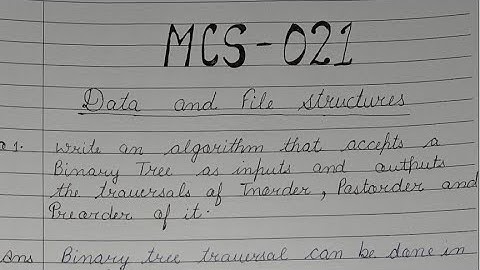 MCS-021
Data and File structures
Q1. Write an algorithm that accepts a
Binary Tree as inputs and outputs
the traversals of Inorder, Postorder and
Preorder of it.
Ans Binary tree traversal can be done in